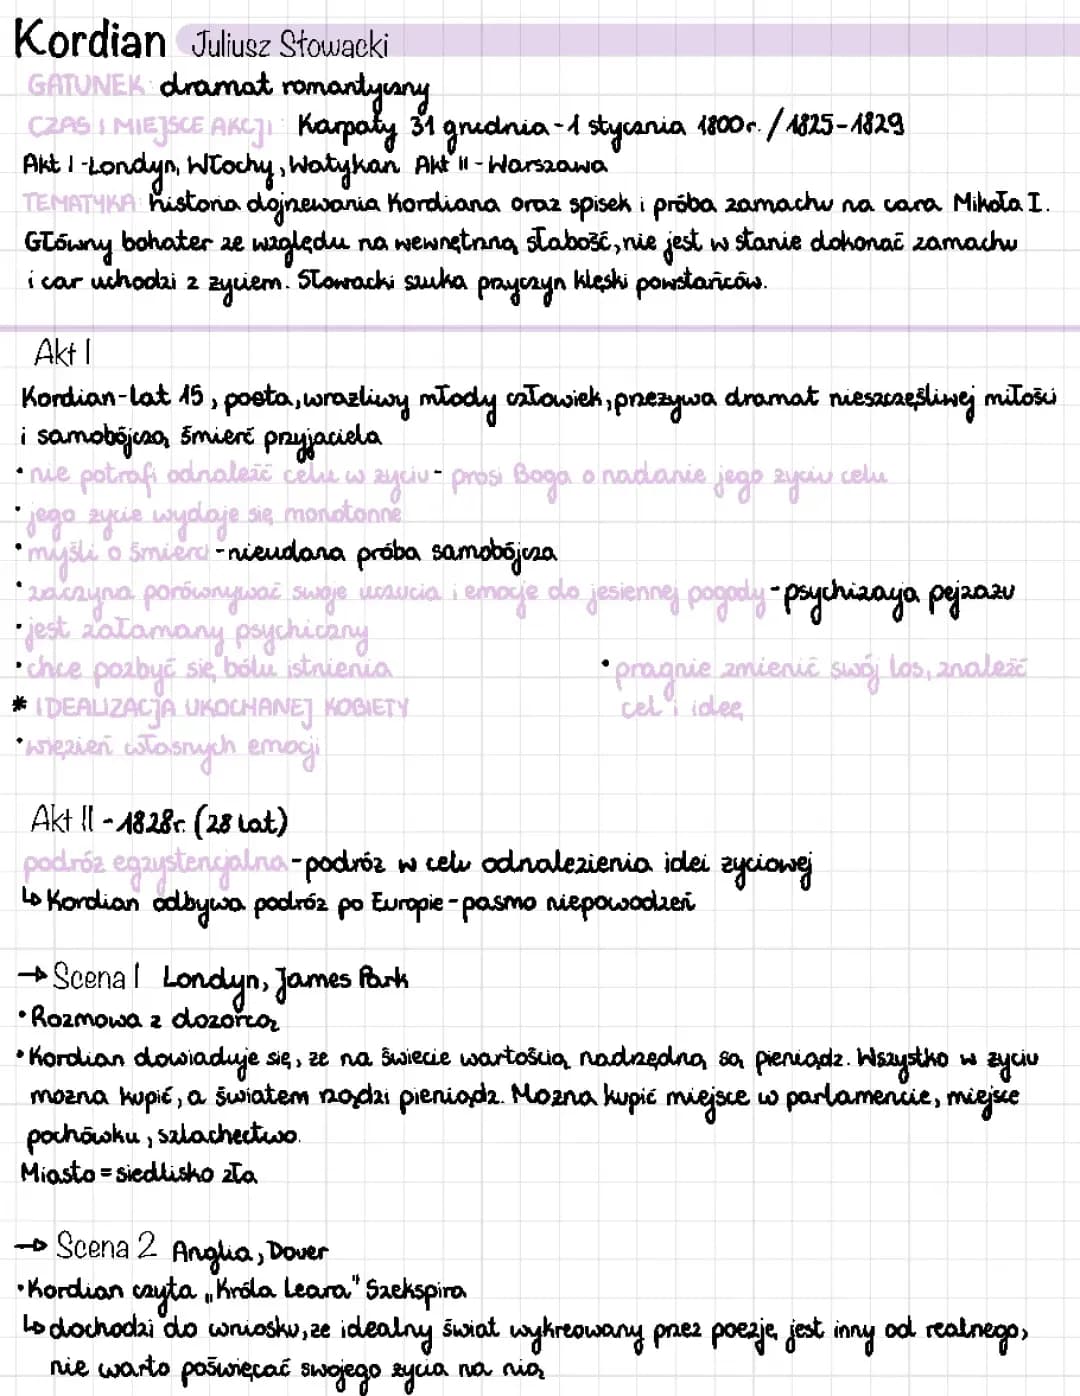 Kordian Juliusz Słowacki
GATUNEK: dramat romantyczny
CZAS I MIEJSCE AKCJI: Karpaty 31 grudnia - 1 stycznia 1800r. / 1825-1829
Akt I - Londyn, Włochy, Watykan Akt II - Warszawa
TEMATYKA: historia dojrzewania Kordiana oraz spisek i próba zamachu na cara Mikoła I.
Główny bohater ze względu na wewnętrzną słabość, nie jest w stanie dokonać zamachu
i car uchodzi z życiem. Słowacki szuka przyczyn klęski powstańców.
Akt I
Kordian - lat 15, poeta, wrażliwy młody człowiek, przeżywa dramat nieszczęśliwej miłości
i samobójczą śmierć przyjaciela
• nie potrafi odnaleźć celu w życiu - prosi Boga o nadanie jego życiu celu
• jego życie wydaje się monotonne
• myśli o śmierci - nieudana próba samobójcza
• zaczyna porównywać swoje uczucia i emocje do jesiennej pogody - psychizacja pejzażu
• jest załamany psychiczny
• chce pozbyć się bólu istnienia
• pragnie zmienić swój los, znaleźć
cel i ideę
* IDEALIZACJA UKOCHANEJ KOBIETY
• więzień własnych emocji
Akt II - 1828r. (28 lat)
podróż egzystencjalna - podróż w celu odnalezienia idei życiowej
↳ Kordian odbywa podróż po Europie - pasmo niepowodzeń
→ Scena 1 Londyn, James Park
• Rozmowa z dozorcą
• Kordian dowiaduje się, że na świecie wartością nadrzędną są pieniądz. Wszystko w życiu
można kupić, a światem rządzi pieniądz. Można kupić miejsce w parlamencie, miejsce
pochówku, szlachectwo.
Miasto = siedlisko zła
→ Scena 2 Anglia, Dover
• Kordian czyta „Króla Leara" Szekspira
↳ dochodzi do wniosku, że idealny świat wykreowany przez poezję jest inny od realnego,
nie warto poświęcać swojego życia na nią